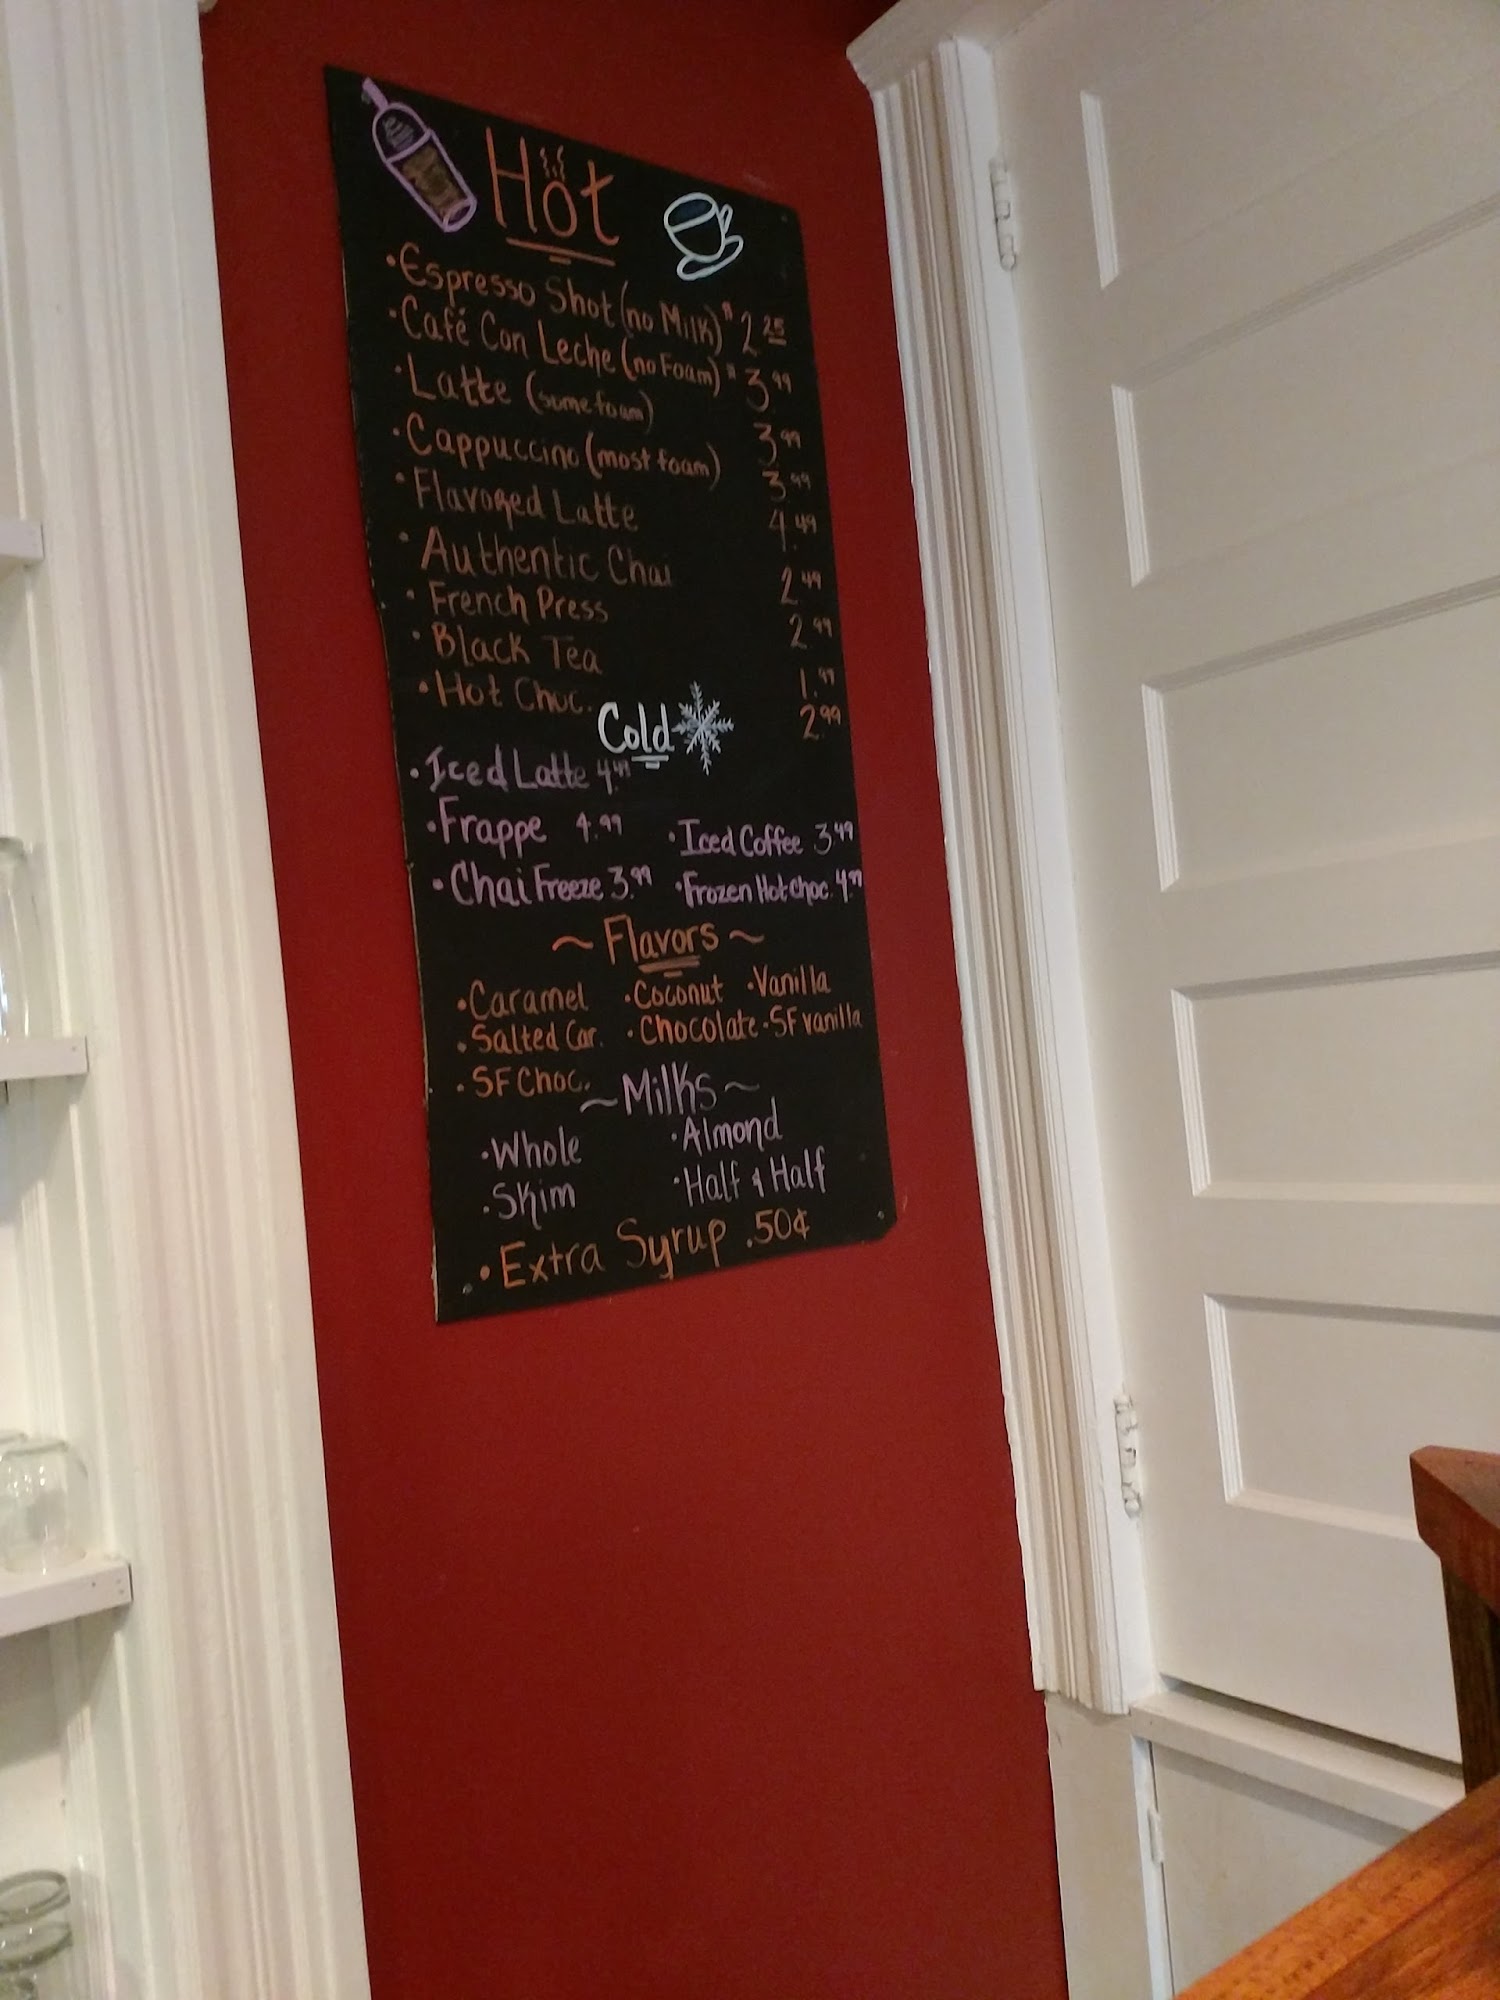 Hot
• Espresso Shot (no Milk) $2.25
• Café Con Leche (no Foam) " 3.99
• Latte (some foam) 3.99
• Cappuccino (most foam) 3.99
• Flavored Latte 4.49
• Authentic Chai 2.49
• French Press 2.99
• Black Tea 1.99
• Hot Choc. 2.99
Cold
• Iced Latte 4.49
• Frappe 4.99 • Iced Coffee 3.49
• Chai Freeze 3.99 • Frozen Hot choc. 4.99
~ Flavors ~
• Caramel • Coconut • Vanilla
• Salted Car. • Chocolate • SF vanilla
• SF Choc.
~ Milks ~
• Whole • Almond
• Skim • Half & Half
• Extra Syrup .50¢